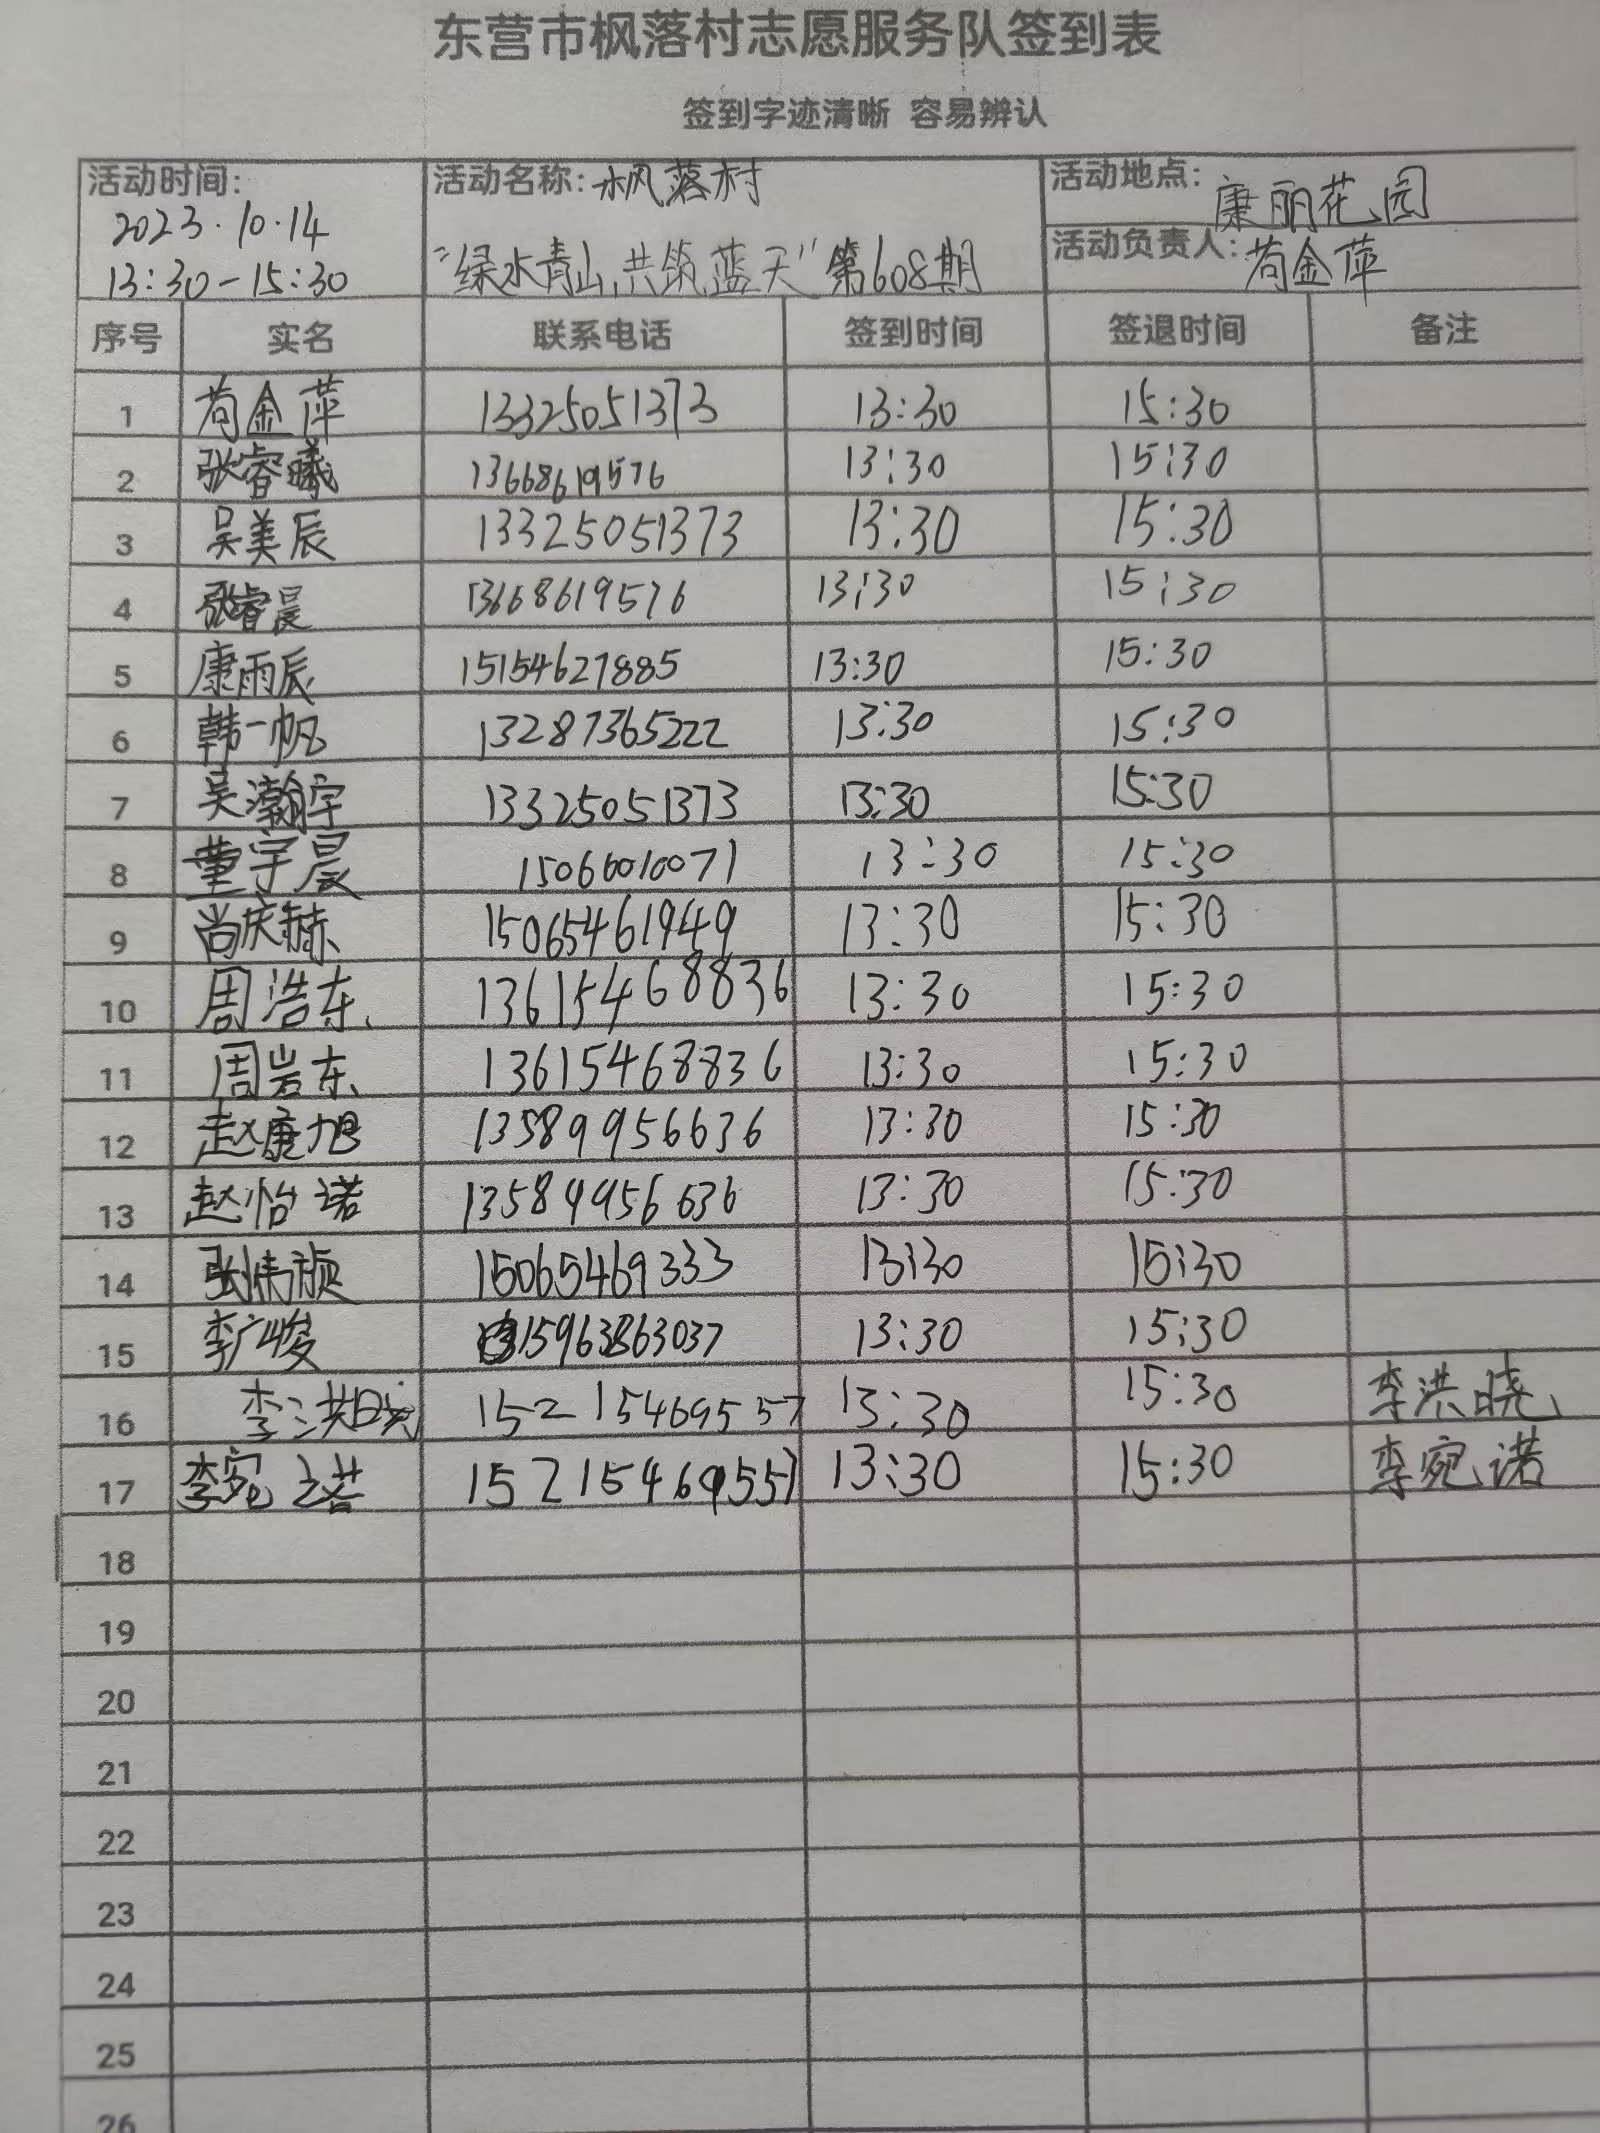 东营市枫落村志愿服务队签到表
签到字迹清晰 容易辨认
活动时间: 2023.10.14 13:30-15:30
活动名称: 枫落村 "绿水青山,共筑蓝天"第608期
活动地点: 康丽花园
活动负责人: 苟金萍
序号 实名 联系电话 签到时间 签退时间 备注
1 苟金萍 13325051373 13:30 15:30
2 张睿曦 13668619576 13:30 15:30
3 吴美辰 13325051373 13:30 15:30
4 张睿晨 13668619576 13:30 15:30
5 康雨辰 15154627885 13:30 15:30
6 韩一帆 13287365222 13:30 15:30
7 吴瀚宇 13325051373 13:30 15:30
8 董宇晨 15066010071 13:30 15:30
9 尚庆赫 15065461949 13:30 15:30
10 周浩东 13615468836 13:30 15:30
11 周岩东 13615468836 13:30 15:30
12 赵康旭 13589956636 13:30 15:30
13 赵怡诺 13589956636 13:30 15:30
14 张 15065469333 13:30 15:30
15 李广峻 15963863037 13:30 15:30
16 李洪晓 15215469557 13:30 15:30 李洪晓
17 李宛诺 15215469557 13:30 15:30 李宛诺
18
19
20
21
22
23
24
25
26